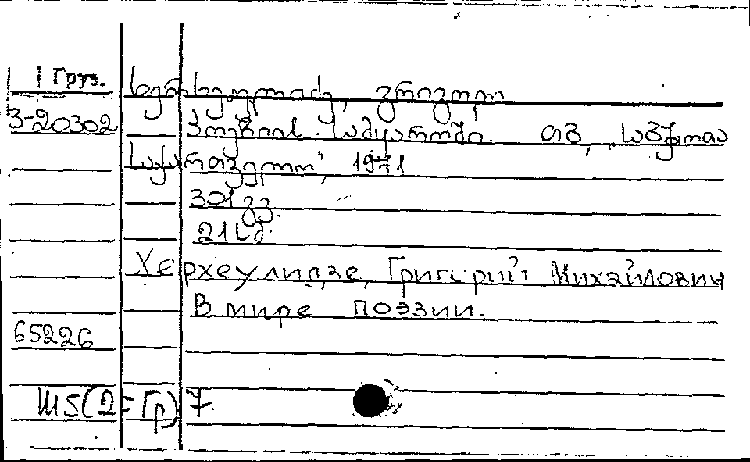 1 Груз.
ხერხეულიძე, გრიგოლ
3-20302 პოეზიის სამყაროში თბ, „საბჭოთა
საქართველო", 1971
301 გვ.
21 სმ.
Херхеулидзе, Григорий Михайлович
В мире поэзии.
65226
Ш5(2=Гр)7